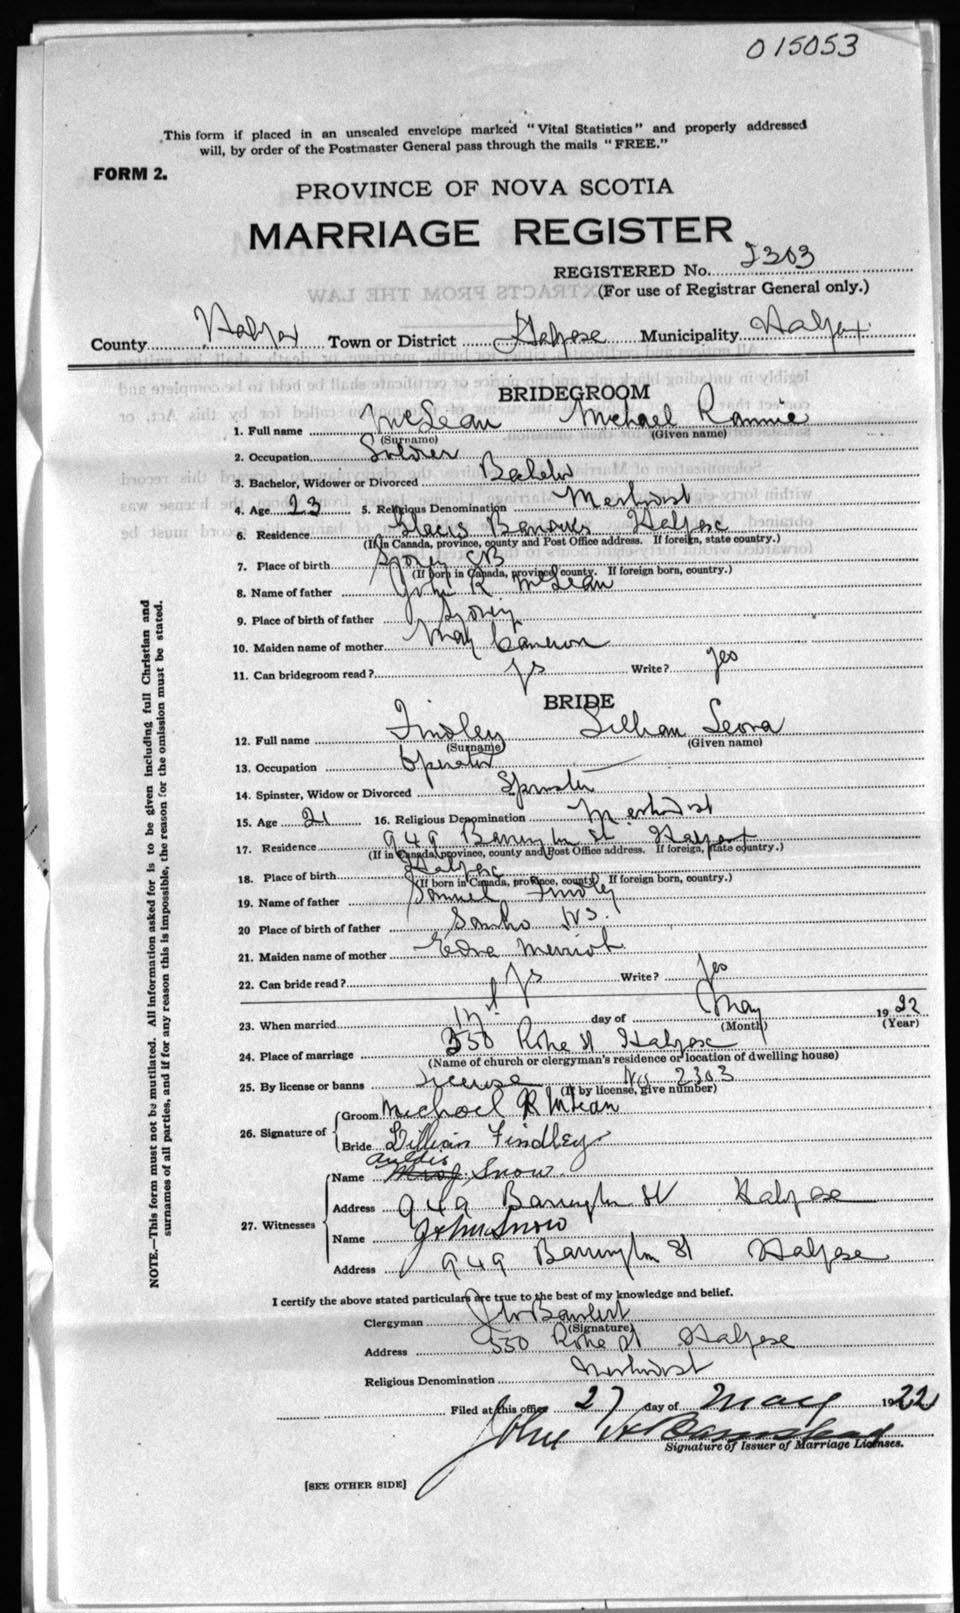 015053
This form if placed in an unsealed envelope marked "Vital Statistics" and properly addressed
will, by order of the Postmaster General pass through the mails "FREE."
FORM 2.
PROVINCE OF NOVA SCOTIA
MARRIAGE REGISTER
REGISTERED No. 2303
(For use of Registrar General only.)
County Halifax Town or District Halifax Municipality Halifax
BRIDEGROOM
1. Full name McLean Michael Rannie
(Surname) (Given name)
2. Occupation Soldier
3. Bachelor, Widower or Divorced Bachelor
4. Age 23 5. Religious Denomination Methodist
6. Residence Glacis Barracks Halifax
(If in Canada, province, county and Post Office address. If foreign, state country.)
7. Place of birth Sydney CB
(If born in Canada, province, county. If foreign born, country.)
8. Name of father John R McLean
9. Place of birth of father Sydney
10. Maiden name of mother May Cameron
11. Can bridegroom read? yes Write? yes
BRIDE
12. Full name Findley Lillian Leona
(Surname) (Given name)
13. Occupation Operator
14. Spinster, Widow or Divorced Spinster
15. Age 21 16. Religious Denomination Methodist
17. Residence 949 Barrington St Halifax
(If in Canada, province, county and Post Office address. If foreign, state country.)
18. Place of birth Halifax
(If born in Canada, province, county. If foreign born, country.)
19. Name of father Samuel Findley
20 Place of birth of father Sambro N.S.
21. Maiden name of mother Edna
22. Can bride read? yes Write? yes
23. When married day of May 1922
(Month) (Year)
24. Place of marriage Halifax
(Name of church or clergyman's residence or location of dwelling house)
25. By license or banns License No 2303
(If by license, give number)
26. Signature of Groom Michael R McLean
Bride Lillian Findley
27. Witnesses Name Snow
Address 949 Barrington St Halifax
Name John Snow
Address 949 Barrington St Halifax
I certify the above stated particulars are true to the best of my knowledge and belief.
Clergyman
(Signature)
Address Halifax
Religious Denomination Methodist
Filed at this office 27 day of May 1922
John
Signature of Issuer of Marriage Licenses.
[SEE OTHER SIDE]
NOTE.—This form must not be mutilated. All information asked for is to be given including full Christian and
surnames of all parties, and if for any reason this is impossible, the reason for the omission must be stated.